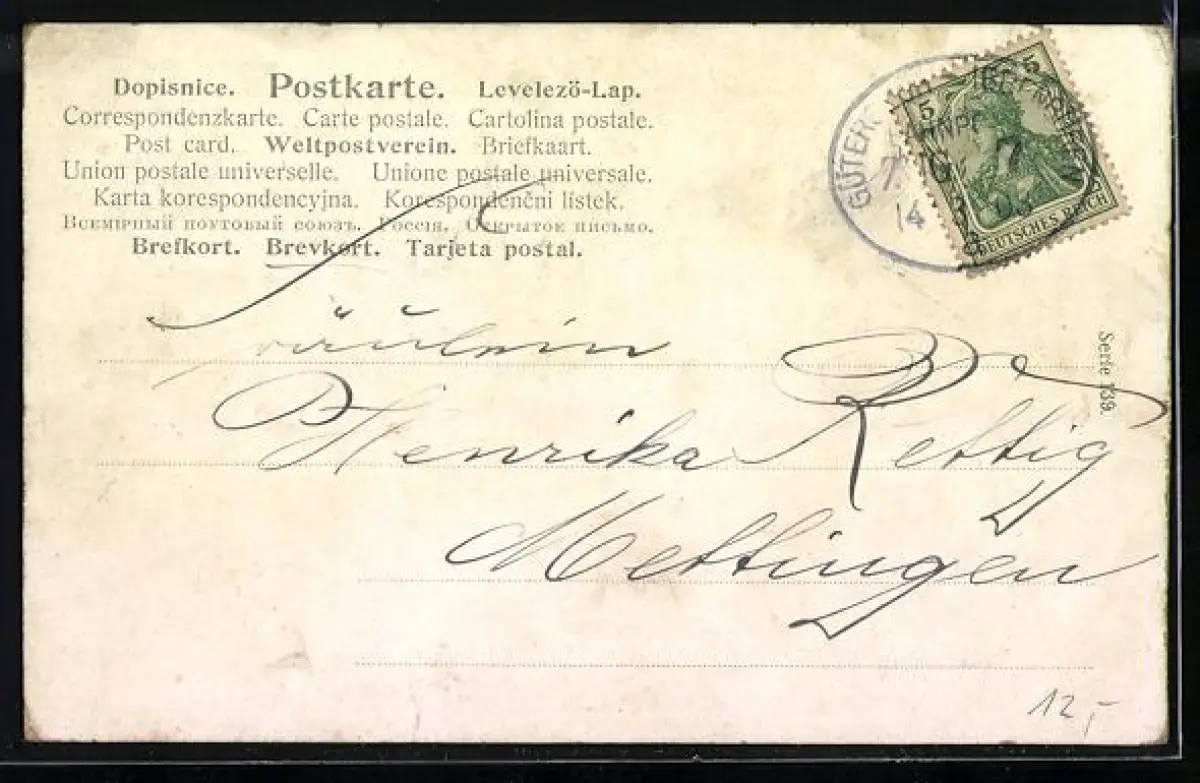 Dopisnice. Postkarte. Levelező-Lap.
Correspondenzkarte. Carte postale. Cartolina postale.
Post card. Weltpostverein. Briefkaart.
Union postale universelle. Unione postale universale.
Karta korespondencyjna. Korespondenční lístek.
Всемірный почтовый союзъ. Россія. Открытое письмо.
Brefkort. Brevkort. Tarjeta postal.
5 5
DEUTSCHES REICH
GÜTER
7
14
Serie 139.
Fräulein
Henrika Rettig
Mettingen
12,-